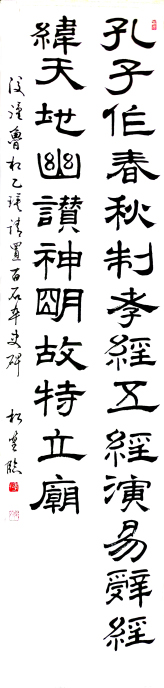 孔子作春秋制孝經五經演易辭經
緯天地幽讚神朙故特立廟
後漢魯相乙瑛請置百石卒史碑 臨